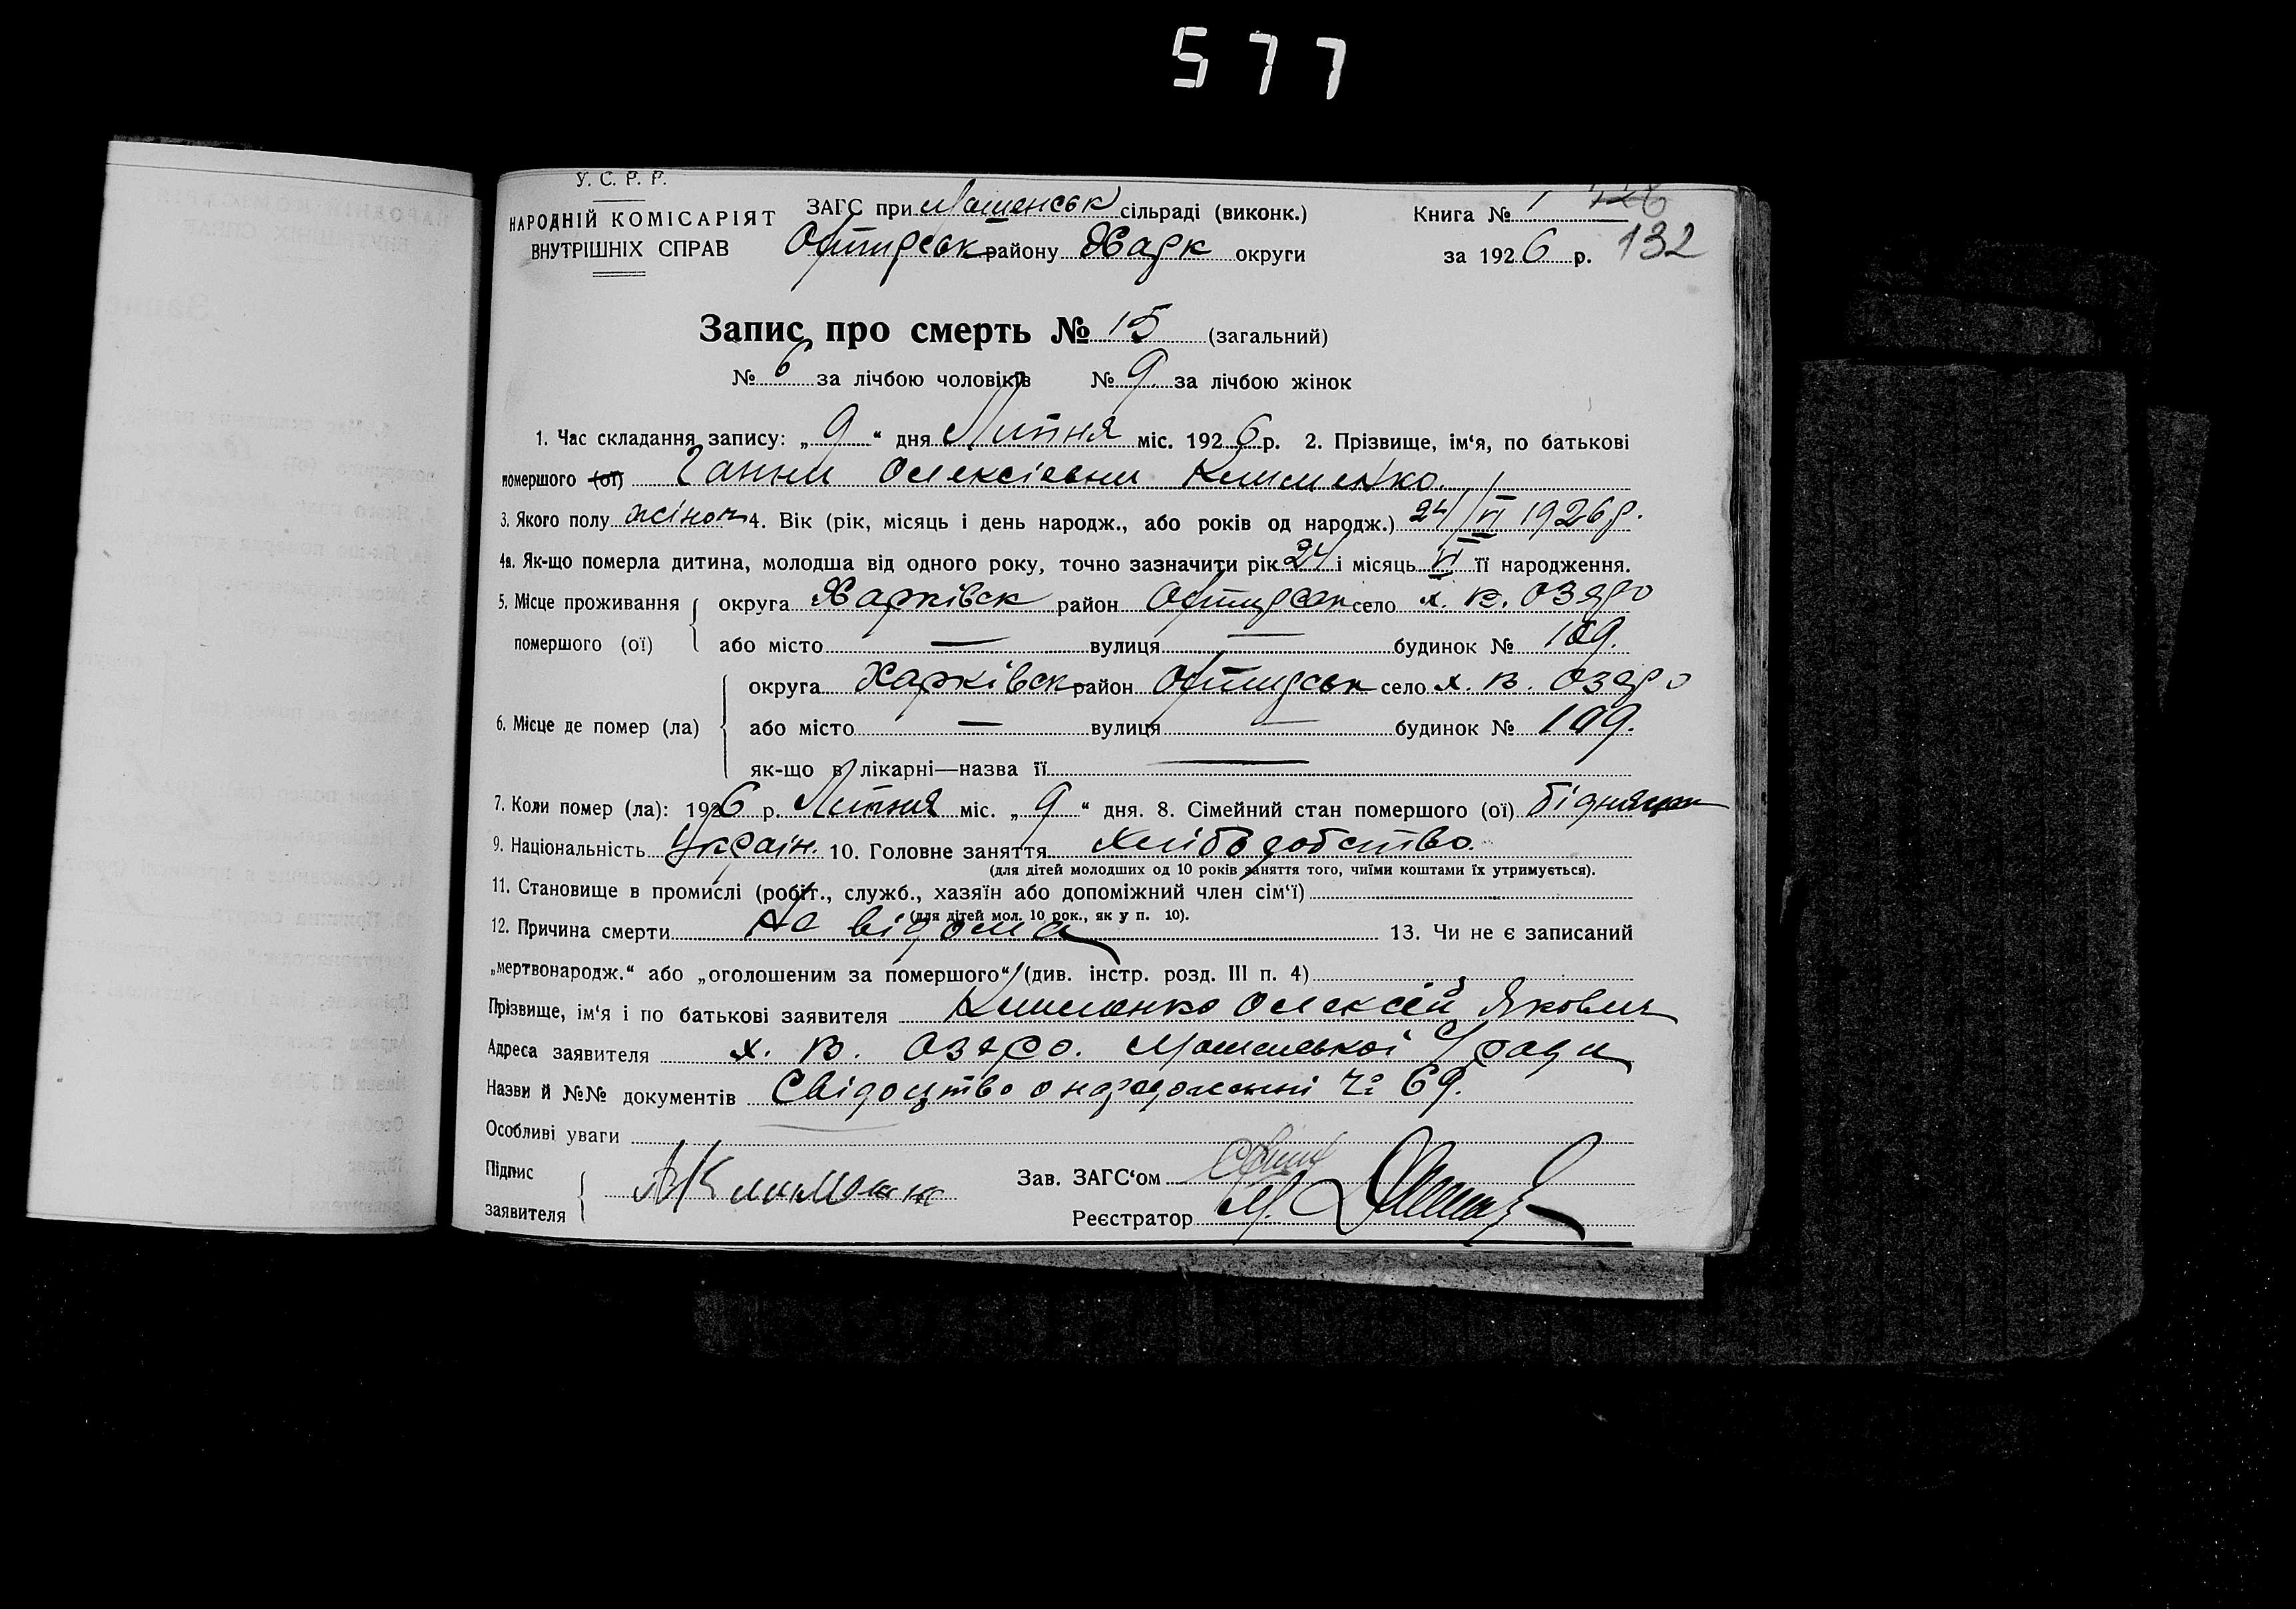 577
У. С. Р. Р.
НАРОДНІЙ КОМІСАРІЯТ
ВНУТРІШНІХ СПРАВ
ЗАГС при Мошенськ сільраді (виконк.)
Охтирськ району Харк округи
Книга № 1
за 1926 р. 132
Запис про смерть № 15 (загальний)
№ 6 за лічбою чоловіків № 9 за лічбою жінок
1. Час складання запису: „ 9 “ дня Липня міс. 1926 р. 2. Прізвище, ім‘я, по батькові
помершого (ої) Ганни Олексіевни Клименко
3. Якого полу жіноч 4. Вік (рік, місяць і день народж., або років од народж.) 24/VI 1926р.
4а. Як-що померла дитина, молодша від одного року, точно зазначити рік 24 і місяць VI її народження.
5. Місце проживання помершого (ої) округа Харківск район Охтирськ село х. В. Озяро
або місто — вулиця — будинок № 109.
6. Місце де помер (ла) округа Харківск район Охтирськ село х. В. Озяро
або місто — вулиця — будинок № 109.
як-що в лікарні—назва її —
7. Коли помер (ла): 1926 р. Липня міс. „ 9 “ дня. 8. Сімейний стан помершого (ої)
9. Національність Україн. 10. Головне заняття Хліборобство.
(для дітей молодших од 10 років заняття того, чиїми коштами їх утримується).
11. Становище в промислі (робіт., служб., хазяїн або допоміжний член сім‘ї)
(для дітей мол. 10 рок., як у п. 10).
12. Причина смерти Не відома 13. Чи не є записаний
„мертвонародж.“ або „оголошеним за помершого“ (див. інстр. розд. III п. 4)
Прізвище, ім‘я і по батькові заявителя Клименко Олексій Якович
Адреса заявителя х. В. Озяро. Мошенської с/ради
Назви й №№ документів Свідоцтво о народженні Чо 69.
Особливі уваги
Підпис
заявителя
Зав. ЗАГС‘ом
Реєстратор